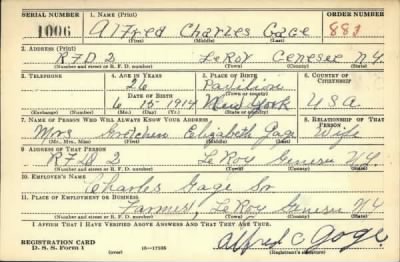 SERIAL NUMBER 1. NAME (Print) ORDER NUMBER
1006 Alfred Charles Gage 883
(First) (Middle) (Last)
2. ADDRESS (Print)
RFD 2 LeRoy Genesee N.Y.
(Number and street or R. F. D. number) (Town) (County) (State)
3. TELEPHONE 4. AGE IN YEARS 5. PLACE OF BIRTH 6. COUNTRY OF CITIZENSHIP
26 Pavilion
DATE OF BIRTH (Town or county)
6 15 1914 New York USA
(Exchange) (Number) (Mo.) (Day) (Yr.) (State or country)
7. NAME OF PERSON WHO WILL ALWAYS KNOW YOUR ADDRESS 8. RELATIONSHIP OF THAT PERSON
Mrs Gretchen Elizabeth Gage Wife
(Mr., Mrs., Miss) (First) (Middle) (Last)
9. ADDRESS OF THAT PERSON
RFD 2 LeRoy Genesee N.Y.
(Number and street or R. F. D. number) (Town) (County) (State)
10. EMPLOYER'S NAME
Charles Gage Sr
11. PLACE OF EMPLOYMENT OR BUSINESS
Farmer, LeRoy Genesee N.Y.
(Number and street or R. F. D. number) (Town) (County) (State)
I AFFIRM THAT I HAVE VERIFIED ABOVE ANSWERS AND THAT THEY ARE TRUE.
REGISTRATION CARD
D. S. S. Form 1 16—17105 Alfred C Gage
(Registrant's signature)